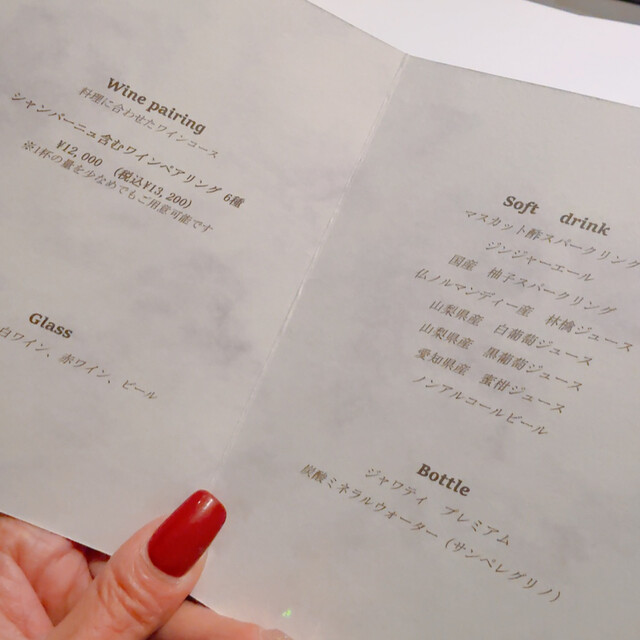 Wine pairing
料理に合わせたワインコース
シャンパーニュ含むワインペアリング 6種
¥12,000 (税込¥13,200)
※1杯の量を少なめでもご用意可能です
Glass
白ワイン、赤ワイン、ビール
Soft drink
マスカット酢スパークリング
ジンジャーエール
国産 柚子スパークリング
仏ノルマンディー産 林檎ジュース
山梨県産 白葡萄ジュース
山梨県産 黒葡萄ジュース
愛知県産 蜜柑ジュース
ノンアルコールビール
Bottle
ジャワティ プレミアム
炭酸ミネラルウォーター (サンペレグリノ)